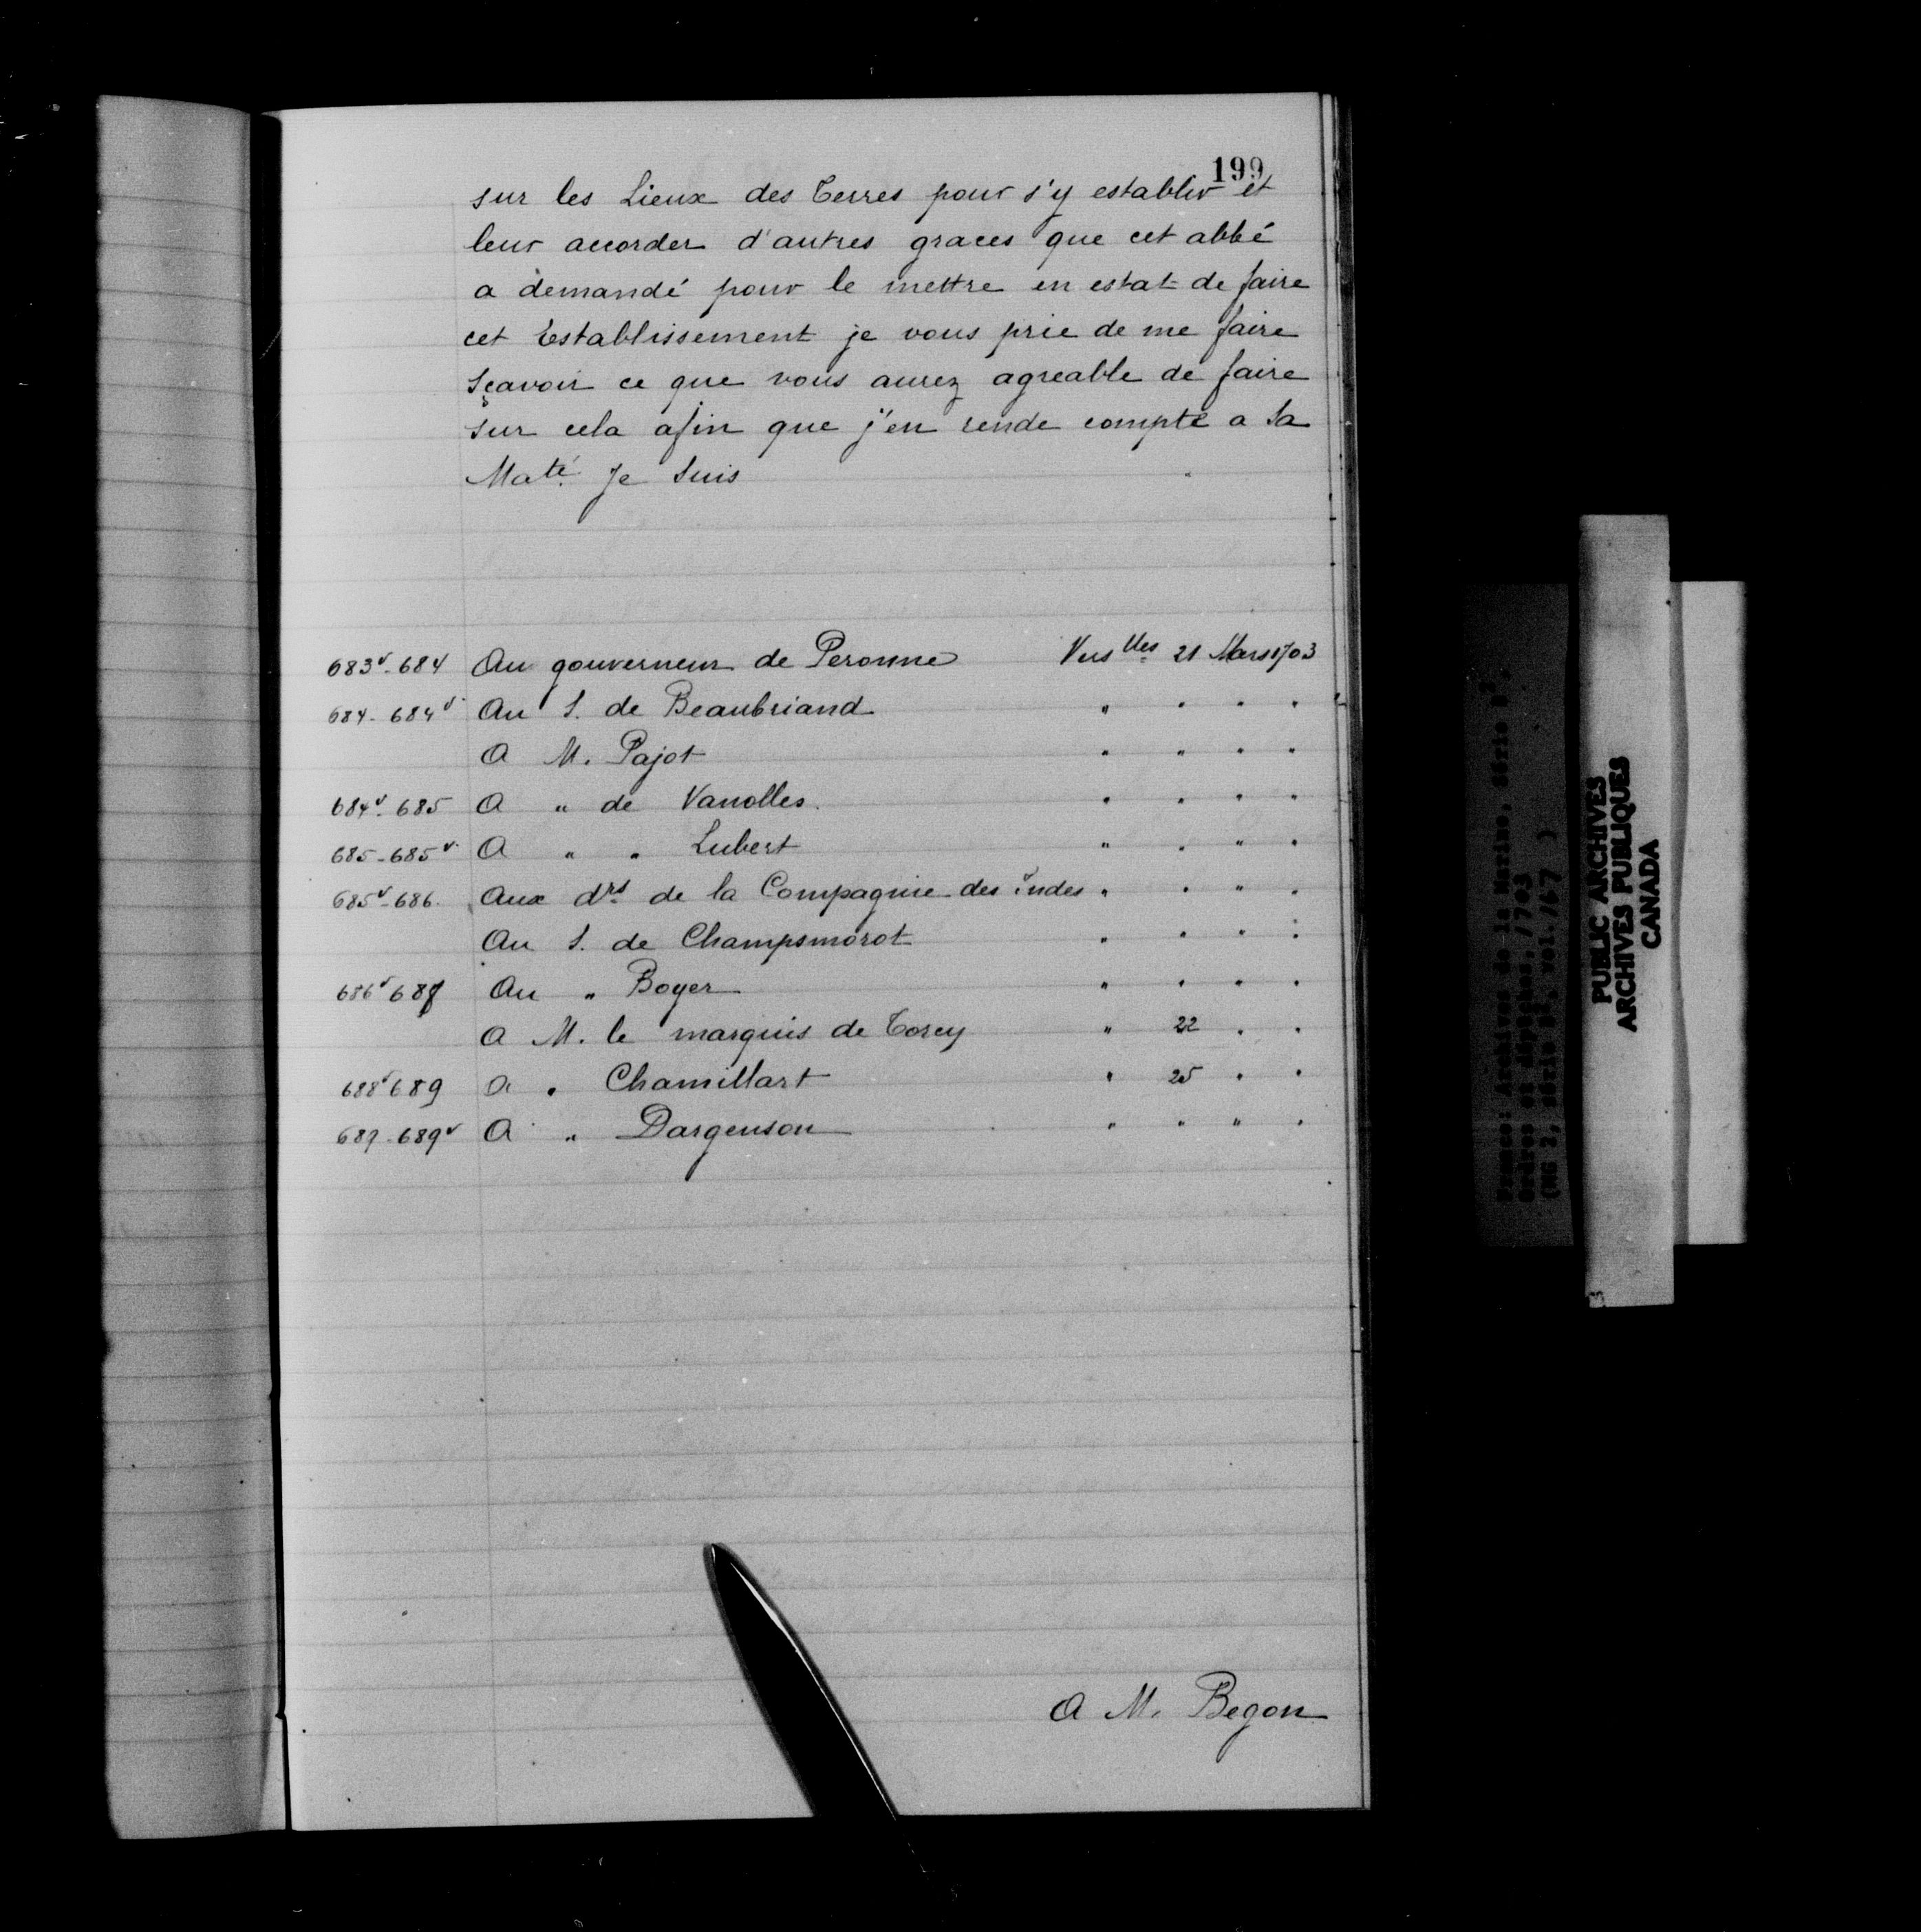 199
sur les Lieux des Terres pour s'y establir et
leur accorder d'autres graces que cet abbé
a demandé pour le mettre en estat de faire
cet Establissement je vous prie de me faire
sçavoir ce que vous aurez agreable de faire
sur cela afin que j'en rende compte a Sa
Maté. Je suis
683v-684 Au gouverneur de Peronne Vers lles 21 Mars 1703
684-684v Au S. de Beaubriand " " " "
A M. Pajot " " " "
684v-685 A " de Vanolles. " " " "
685-685v A " " Lubert " " " "
685v-686. Aux drs de la Compagnie des indes " " " "
Au S. de Champsmorot " " " "
686v 688 Au " Boyer " " " "
A M. le marquis de Torcy " 22 " "
688v 689 A " Chamillart " 25 " "
689-689v A " Dargenson " " " "
A M. Begon
PUBLIC ARCHIVES
ARCHIVES PUBLIQUES
CANADA
France: Archives de la Marine, Série B2,
Ordres et dépêches, 1703
(MG 2, série B2, vol. 167 )